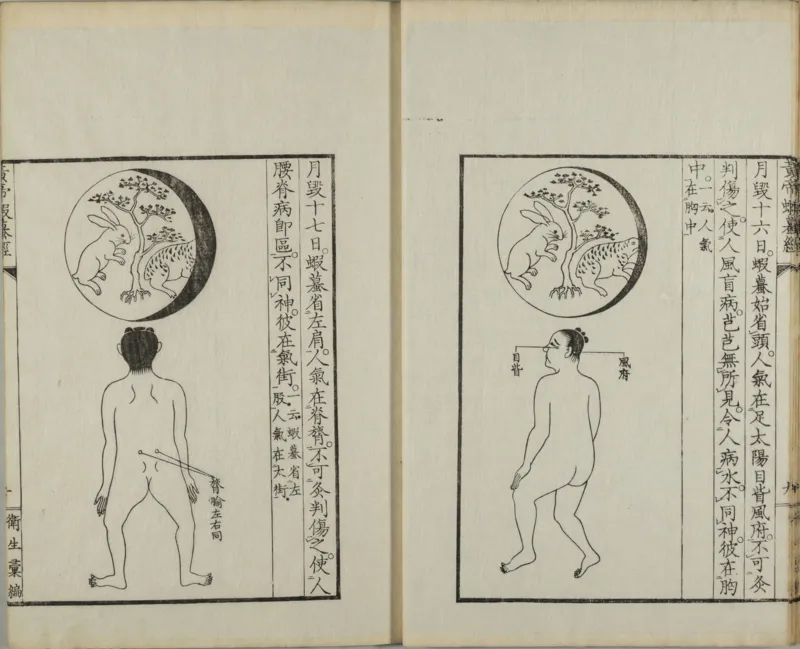 月毀十六日。蝦蟇始省頭。人氣在足太陽目眥風府。不可灸
判傷之。使人風盲病。芒芒無所見。令人病水。不同神彼在胸
中。一云人氣
在胸中
風府
目眥
月毀十七日。蝦蟇省左肩。人氣在脊膂。不可灸判傷之。使人
腰脊病即區。不同神彼在氣街。一云蝦蟇省左
股人氣在大街。
膂喻左右同
黃帝蝦蟇經
衛生彙編